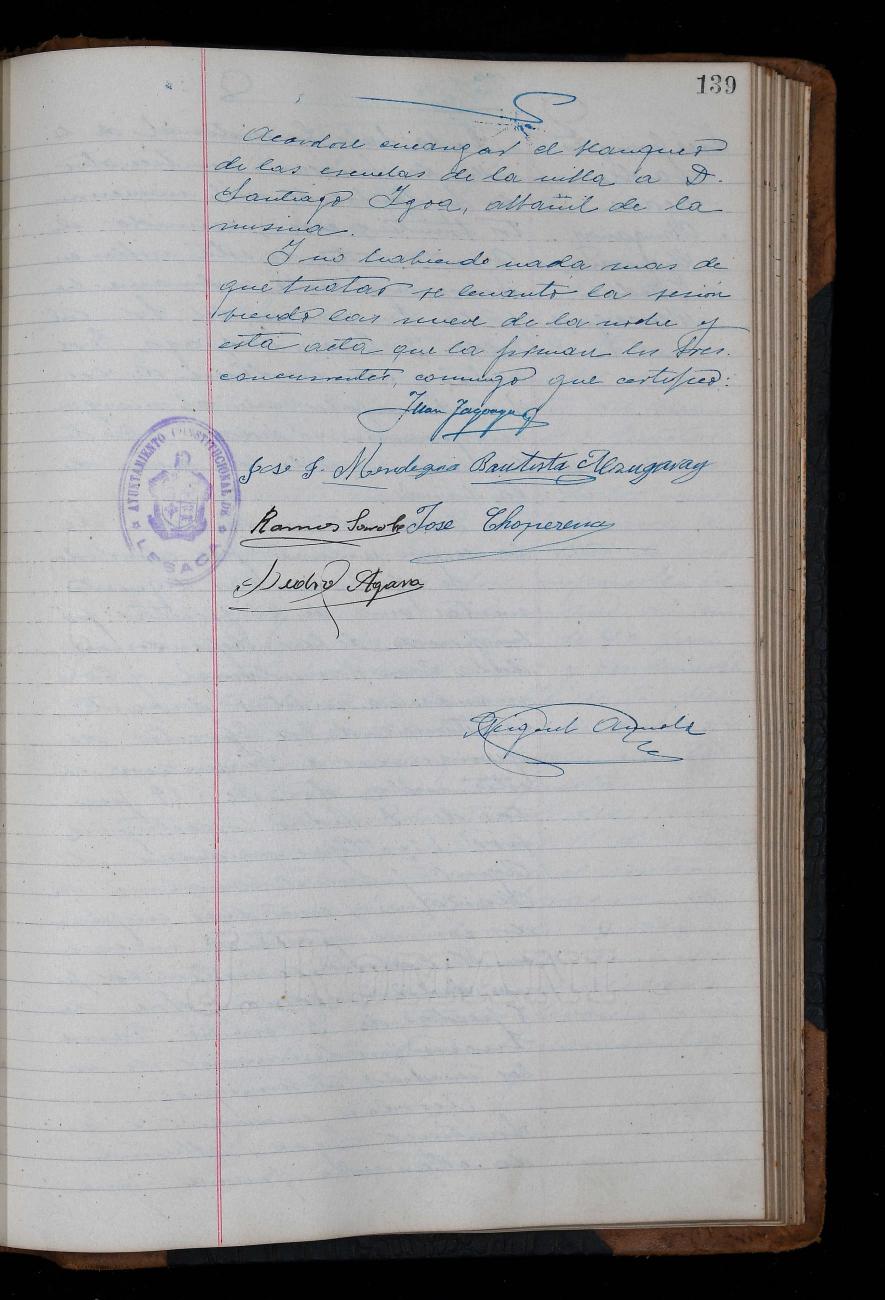 139
Acordose encargar el blanqueo
de las escuelas de la villa a D.
Santiago Igoa, albañil de la
misma.
Y no habiendo nada mas de
que tratar se levantó la sesion
siendo las nueve de la noche y
esta acta que la firman los Sres.
concurrentes, conmigo que certifico:
Juan
Jose F. Mendegia Bautista Alzugaray
Ramon Jose Choperena
Pedro Agara
Miguel
AYUNTAMIENTO CONSTITUCIONAL DE
LESACA